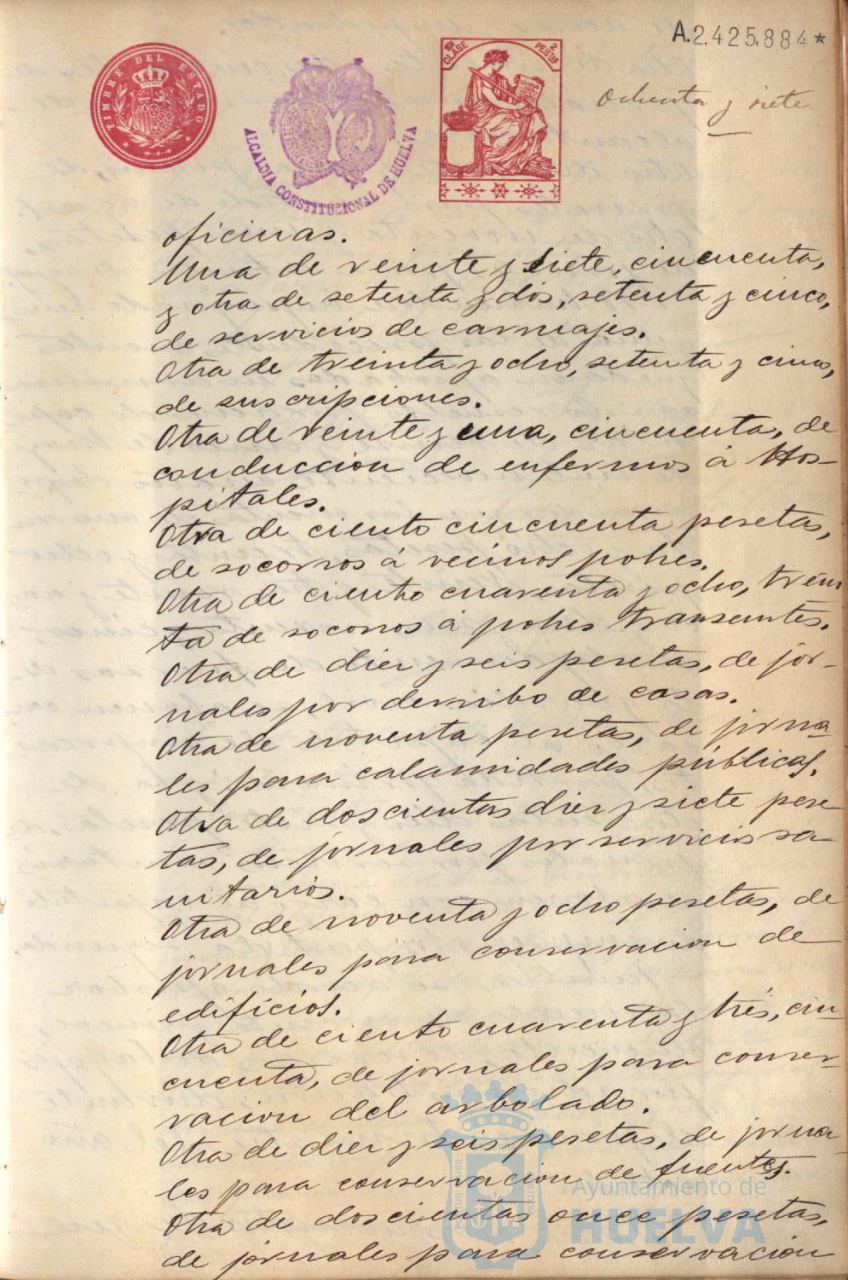 A.2.425.884*
TIMBRE DEL ESTADO
ALCALDIA CONSTITUCIONAL DE HUELVA
10ª CLASE
2 PESTAS
Ochenta y siete
oficinas.
Una de veinte y siete, cincuenta,
y otra de setenta y dos, setenta y cinco,
de servicios de carruajes.
Otra de treinta y ocho, setenta y cinco,
de suscripciones.
Otra de veinte y una, cincuenta, de
conduccion de enfermos á Hos-
pitales.
Otra de ciento cincuenta pesetas,
de socorros á vecinos pobres.
Otra de ciento cuarenta y ocho, trein
ta de socorros á pobres transeuntes.
Otra de diez y seis pesetas, de jor-
nales por derribo de casas.
Otra de noventa pesetas, de jorna
les para calamidades públicas.
Otra de doscientas diez y siete pese
tas, de jornales por servicios sa-
nitarios.
Otra de noventa y ocho pesetas, de
jornales para conservacion de
edificios.
Otra de ciento cuarenta y trés, cin-
cuenta, de jornales para conser-
vacion del arbolado.
Otra de diez y seis pesetas, de jorna-
les para conservacion de fuentes.
Otra de doscientas once pesetas,
de jornales para conservacion
Ayuntamiento de
HUELVA